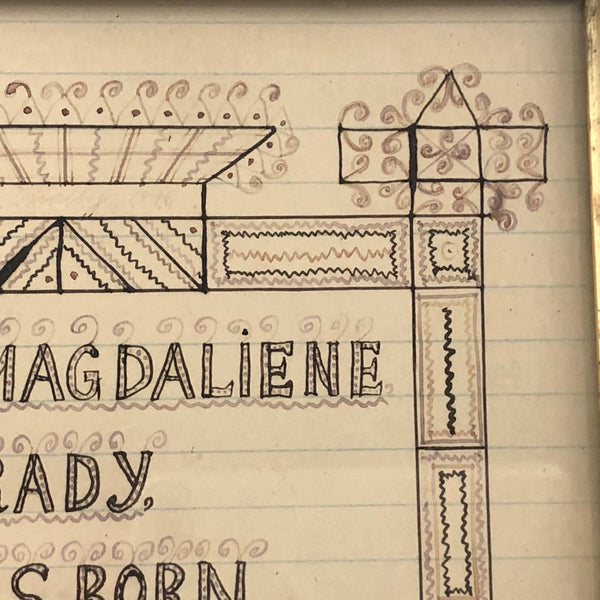 MAGDALiENE
RADY,
S BORN